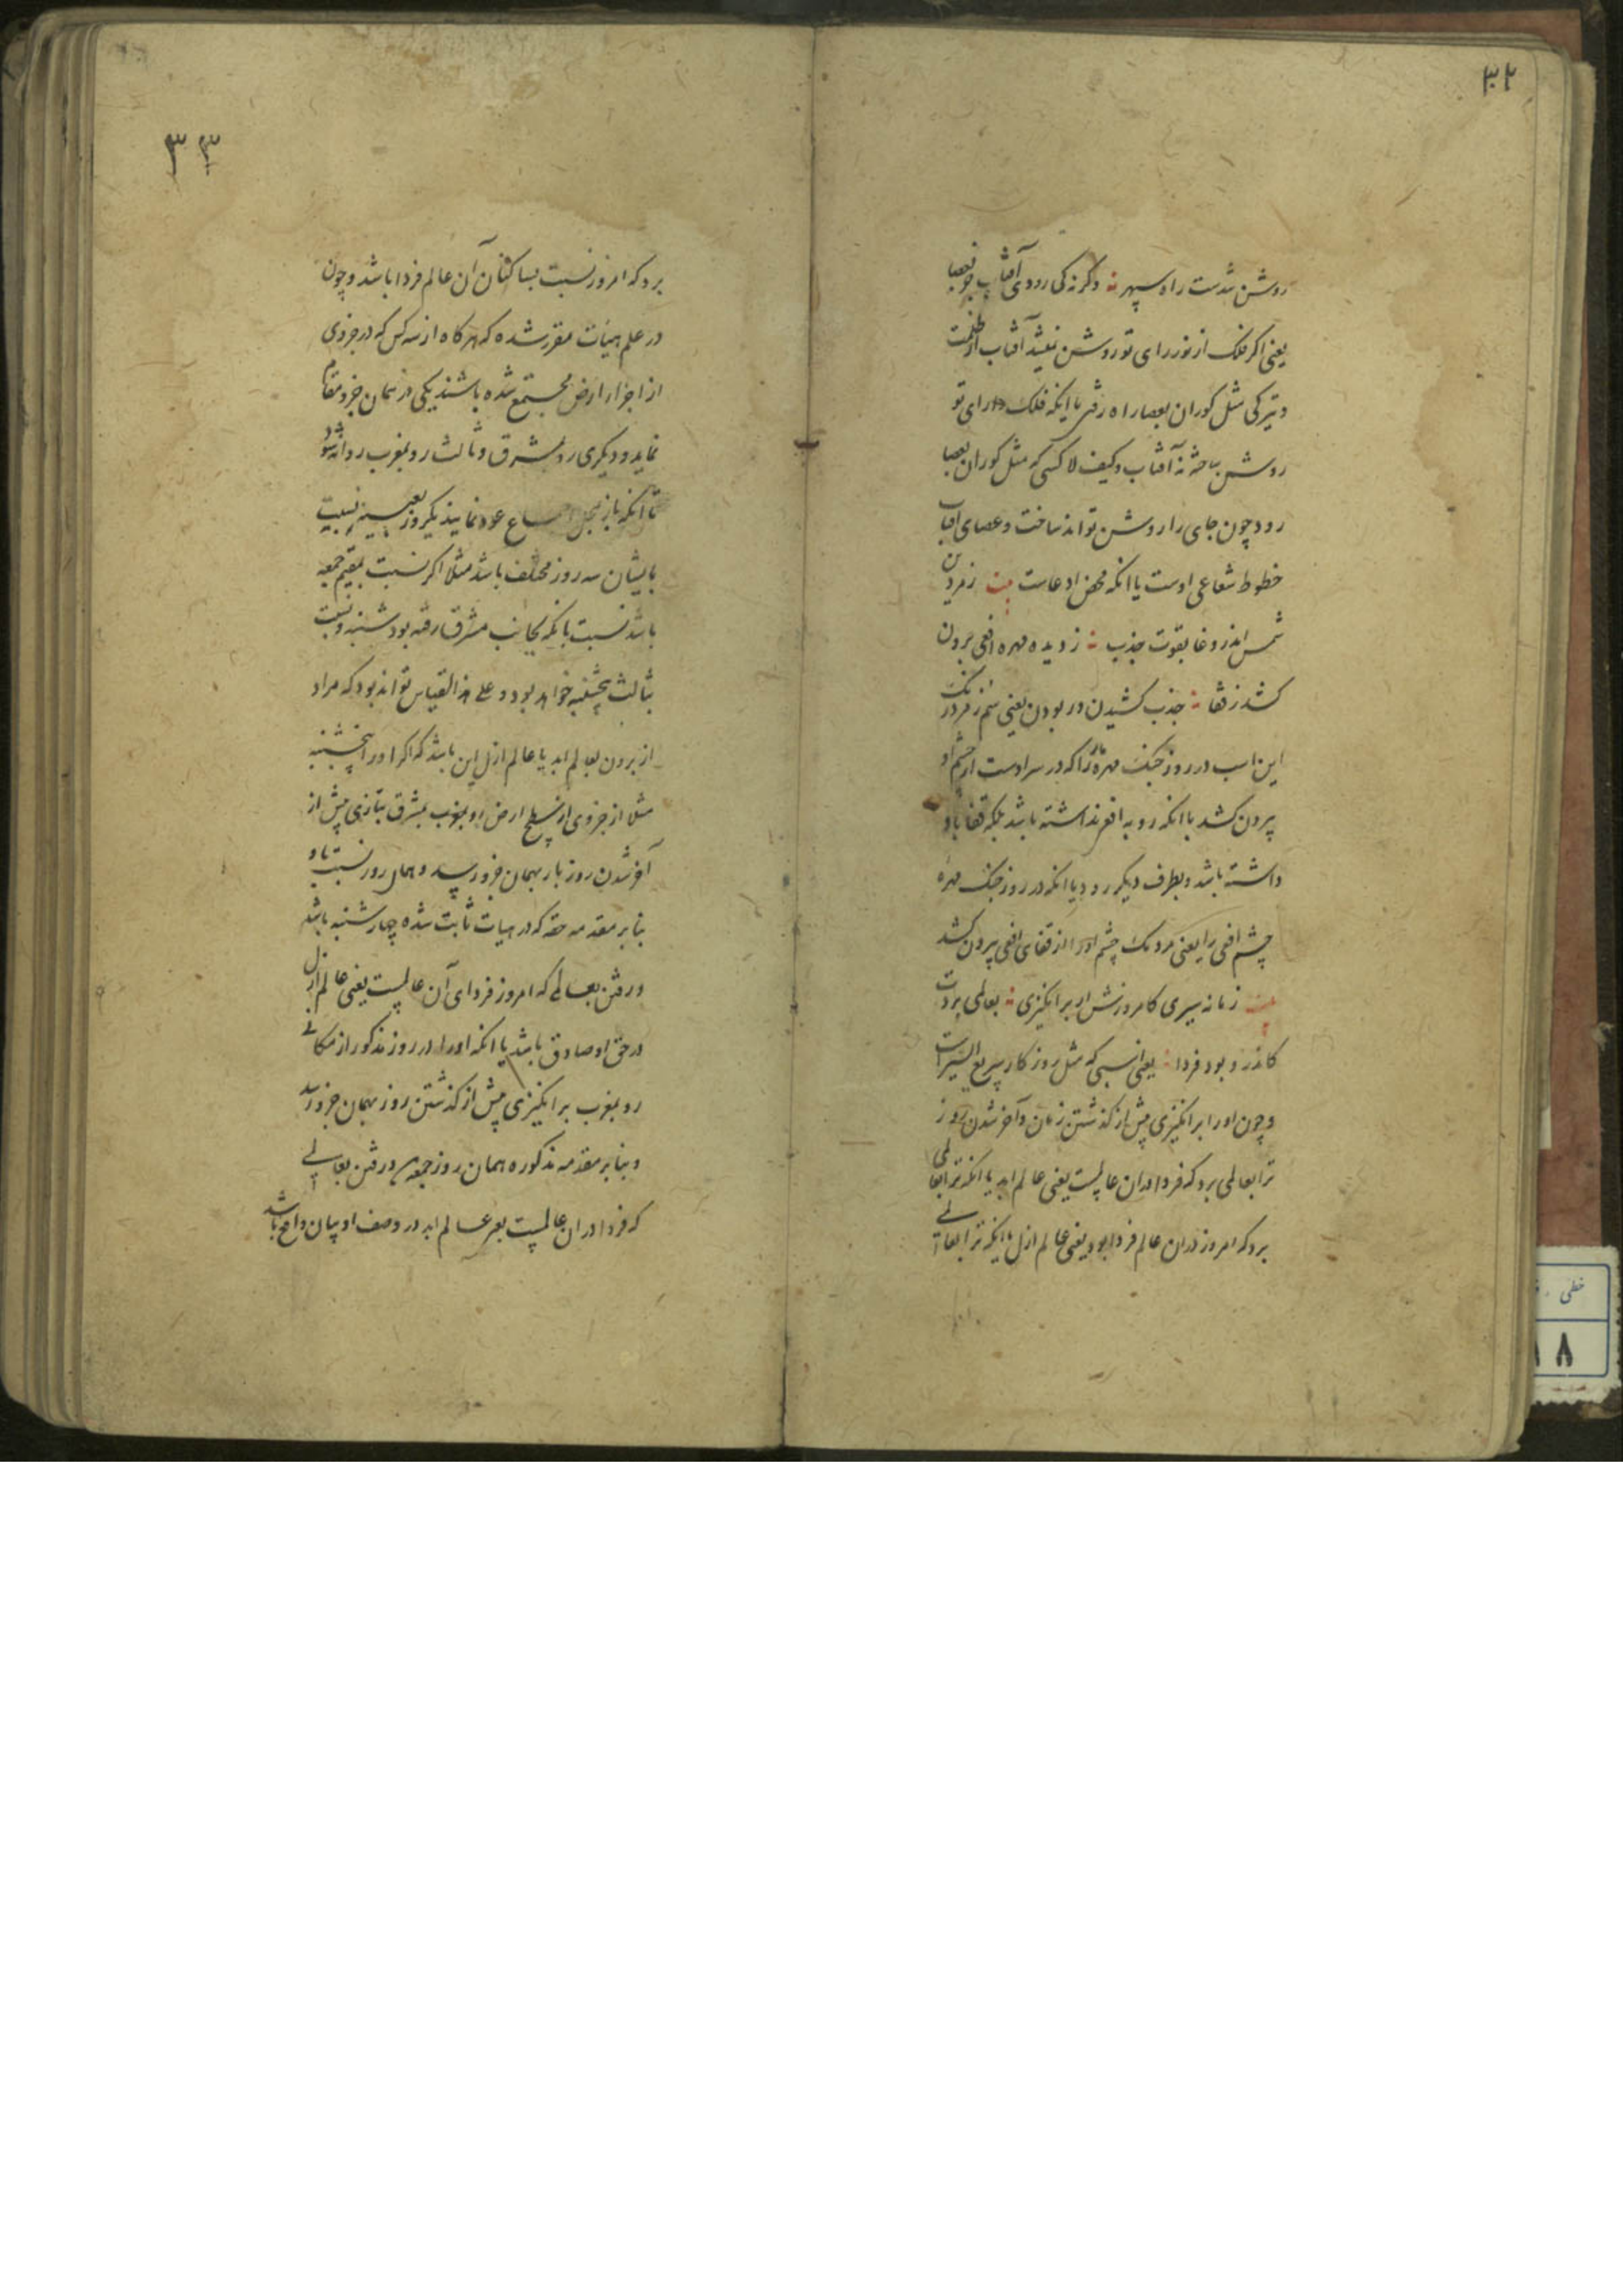 ۳۲
روشن شدست راه سپهر ؞ وگرنه کی رودی آفتاب جز بعصا
یعنی اکر فلک از نور رای تو روشن نمیشد آفتاب از ظلمت
و تیرکی مثل کوران بعصا راه رفتی با اینکه فلک را رای تو
روشن ساخته نه آفتاب و کیف لا کسی که مثل کوران بعصا
رود چون جای را روشن تواند ساخت و عصای افتاب
خطوط شعاعی اوست یا انکه محض ادعاست زمردین
سمش اندر وغا بقوت جذب ؞ ز دیده مهره افعی برون
کشد ز قفا ؞ جذب کشیدن و ربودن یعنی سم زمرد رنک
این اسب در روز جنک مهره مار را که در سر اوست از چشم او
بیرون کشد با انکه رو به افعی نداشته باشد بلکه قفا باو
داشته باشد و بطرف دیکر رود یا انکه در روز جنک مهره
چشم افعی را یعنی مردمک چشم او را از قفای افعی بیرون کشد
زمانه سیری کامروزش ار برانکیزی ؞ بعالمی بردت
کاندرو بود فردا ؞ یعنی اسبی که مثل روزکار سریع السیر است
و چون او را برانکیزی پیش از کذشتن زمان و آخر شدن روز
ترا بعالمی برد که فردا دران عالمست یعنی عالم ابد یا انکه ترا بعالمی
برد که امروز دران عالم فردا بود یعنی عالم ازل یا اینکه ترا بعالمی
۳۳
برد که امروز نسبت بساکنان آن عالم فردا باشد و چون
در علم هیات مقرر شده که هرکاه از سه کس که در جزوی
از اجزاء ارض مجتمع شده باشند یکی در همان جزو مقام
نماید و دیکری رو بمشرق و ثالث رو بمغرب روانه شود
تا آنکه باز بمحل اجتماع عود نمایند یکروز بعینه نسبت
بایشان سه روز مختلف باشد مثلا اکر نسبت بمقیم جمعه
باشد نسبت بانکه بجانب مشرق رفته بود شنبه و نسبت
بثالث پنجشنبه خواهد بود و علی هذا القیاس تواند بود که مراد
از بردن بعالم ابد یا عالم ازل این باشد که اکر او را پنجشنبه
مثلا از جزوی از سطح ارض رو بمغرب بمشرق بتازی پیش از
آخر شدن روز باز بهمان جزو رسد و همان روز نسبت باو
بنابر مقدمه حقه که در هیات ثابت شده چهارشنبه باشد
و رفتن بعالمی که امروز فردای آن عالمست یعنی عالم ازل
در حق او صادق باشد یا انکه او را در روز مذکور از مکانی
رو بمغرب برانکیزی پیش از کذشتن روز بهمان جزو رسد
و بنابر مقدمه مذکوره همان روز جمعه و رفتن بعالمی
که فردا دران عالمست یعنی عالم ابد در وصف او بیان واقع باشد
خطی
۸